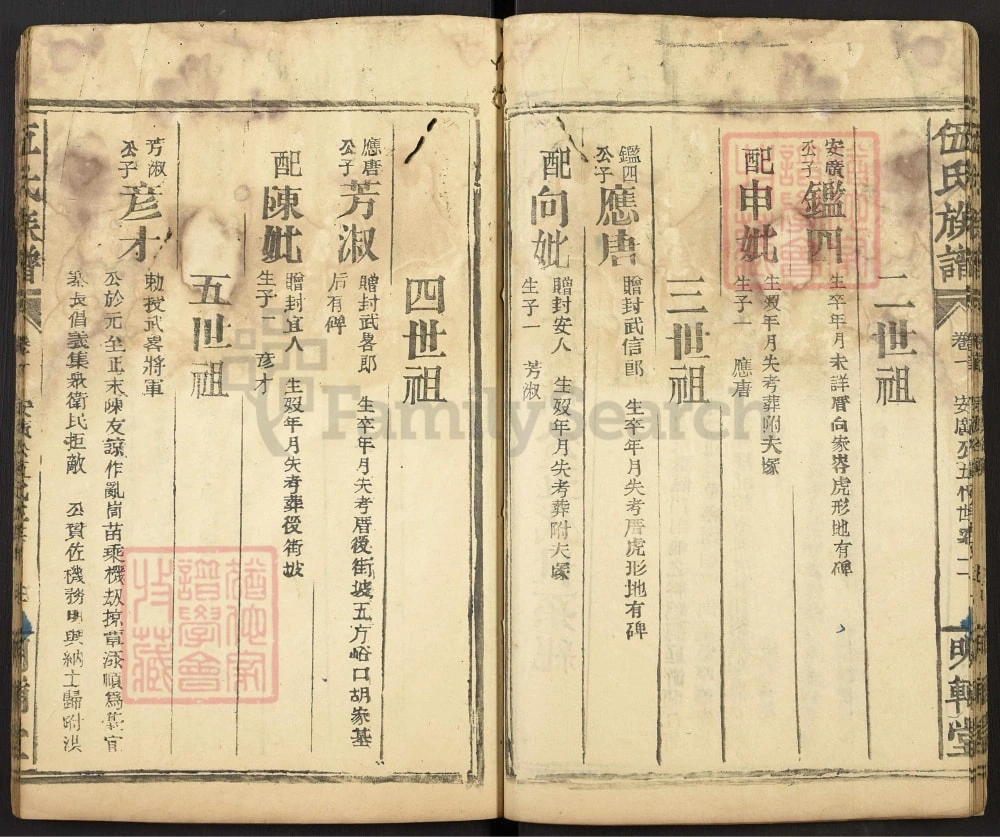 伍氏族譜
卷一
安廣公五代世系
二
明輗堂
二世祖
安廣公子
鑑四
生卒年月未詳厝向家峇虎形地有碑
配申妣
生歿年月失考葬附夫塚
生子一 應唐
三世祖
鑑四公子
應唐
贈封武信郎 生卒年月失考厝虎形地有碑
配向妣
贈封安人 生歿年月失考葬附夫塚
生子一 芳淑
四世祖
應唐公子
芳淑
贈封武畧郎 生卒年月失考厝後街坡五方峪口胡家基
后有碑
配陳妣
贈封宜人 生歿年月失考葬後街坡
生子一 彦才
五世祖
芳淑公子
彦才
勅授武畧將軍
公於元至正末陳友諒作亂峝苗乘機刼掠 添順爲
長倡義集衆衛民拒敵 公賛佐機務明興納土歸附洪
氏族譜
FamilySearch
猶他家譜學會收藏
猶他家譜學會收藏